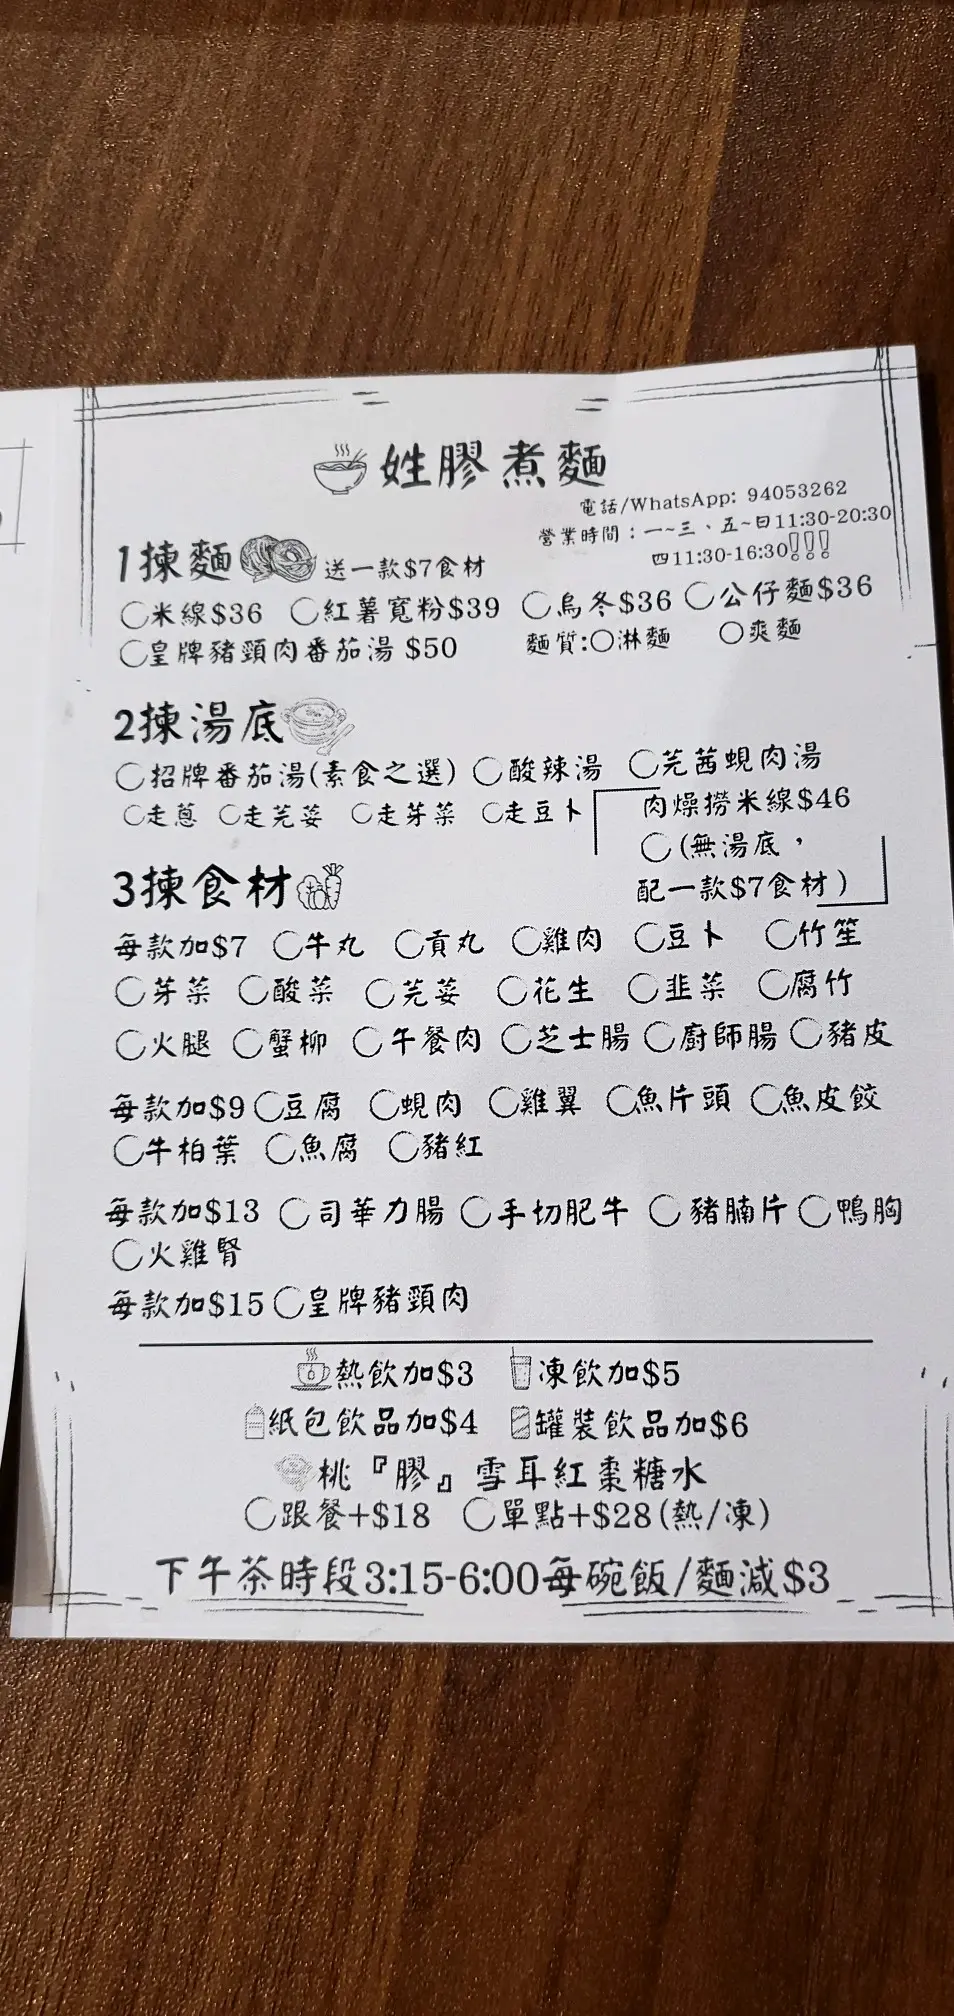 姓膠煮麵
電話/WhatsApp: 94053262
營業時間：一~三、五~日11:30-20:30
四11:30-16:30!!!
1揀麵 送一款$7食材
○米線$36 ○紅薯寬粉$39 ○烏冬$36 ○公仔麵$36
○皇牌豬頸肉番茄湯 $50 麵質:○淋麵 ○爽麵
2揀湯底
○招牌番茄湯(素食之選) ○酸辣湯 ○芫茜蜆肉湯
○走蔥 ○走芫荽 ○走芽菜 ○走豆卜
肉燥撈米線$46
○(無湯底，
配一款$7食材)
3揀食材
每款加$7 ○牛丸 ○貢丸 ○雞肉 ○豆卜 ○竹笙
○芽菜 ○酸菜 ○芫荽 ○花生 ○韭菜 ○腐竹
○火腿 ○蟹柳 ○午餐肉 ○芝士腸 ○廚師腸 ○豬皮
每款加$9 ○豆腐 ○蜆肉 ○雞翼 ○魚片頭 ○魚皮餃
○牛柏葉 ○魚腐 ○豬紅
每款加$13 ○司華力腸 ○手切肥牛 ○豬腩片 ○鴨胸
○火雞腎
每款加$15 ○皇牌豬頸肉
熱飲加$3 凍飲加$5
紙包飲品加$4 罐裝飲品加$6
桃『膠』雪耳紅棗糖水
○跟餐+$18 ○單點+$28(熱/凍)
下午茶時段3:15-6:00每碗飯/麵減$3